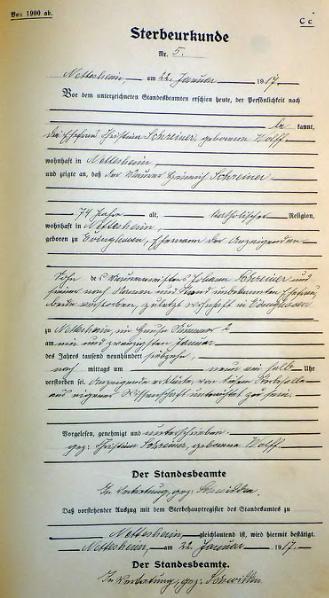 Vor. 1900 ab.
C c
Sterbeurkunde
Nr. 5.
Nettersheim, am 22. Januar 1917.
Vor dem unterzeichneten Standesbeamten erschien heute, der Persönlichkeit nach
be kannt,
die Ehefrau Christina Schreiner geborene Wolff
wohnhaft in Nettersheim,
und zeigte an, daß der Heinrich Schreiner
74 Jahre alt, katholischer Religion,
wohnhaft in Nettersheim,
geboren zu Ehemann der Anzeigenden
Sohn des Johann Schreiner und
seiner nach Namen und Stand unbekannten Ehefrau,
beide verstorben, zuletzt wohnhaft in
zu Nettersheim, im Hause Nummer
am ein und zwanzigsten Januar
des Jahres tausend neunhundert siebzehn
nach mittags um Uhr
verstorben sei. Anzeigende erklärte, von diesem Sterbefalle
aus eigener Wissenschaft unterrichtet zu sein.
Vorgelesen, genehmigt und unterschrieben.
gez: Christina Schreiner, geborene Wolff.
Der Standesbeamte
In Vertretung, gez.
Daß vorstehender Auszug mit dem Sterbehauptregister des Standesamtes zu
Nettersheim gleichlautend ist, wird hiermit bestätigt.
Nettersheim, am 22. Januar 1917.
Der Standesbeamte.
In Vertretung, gez.